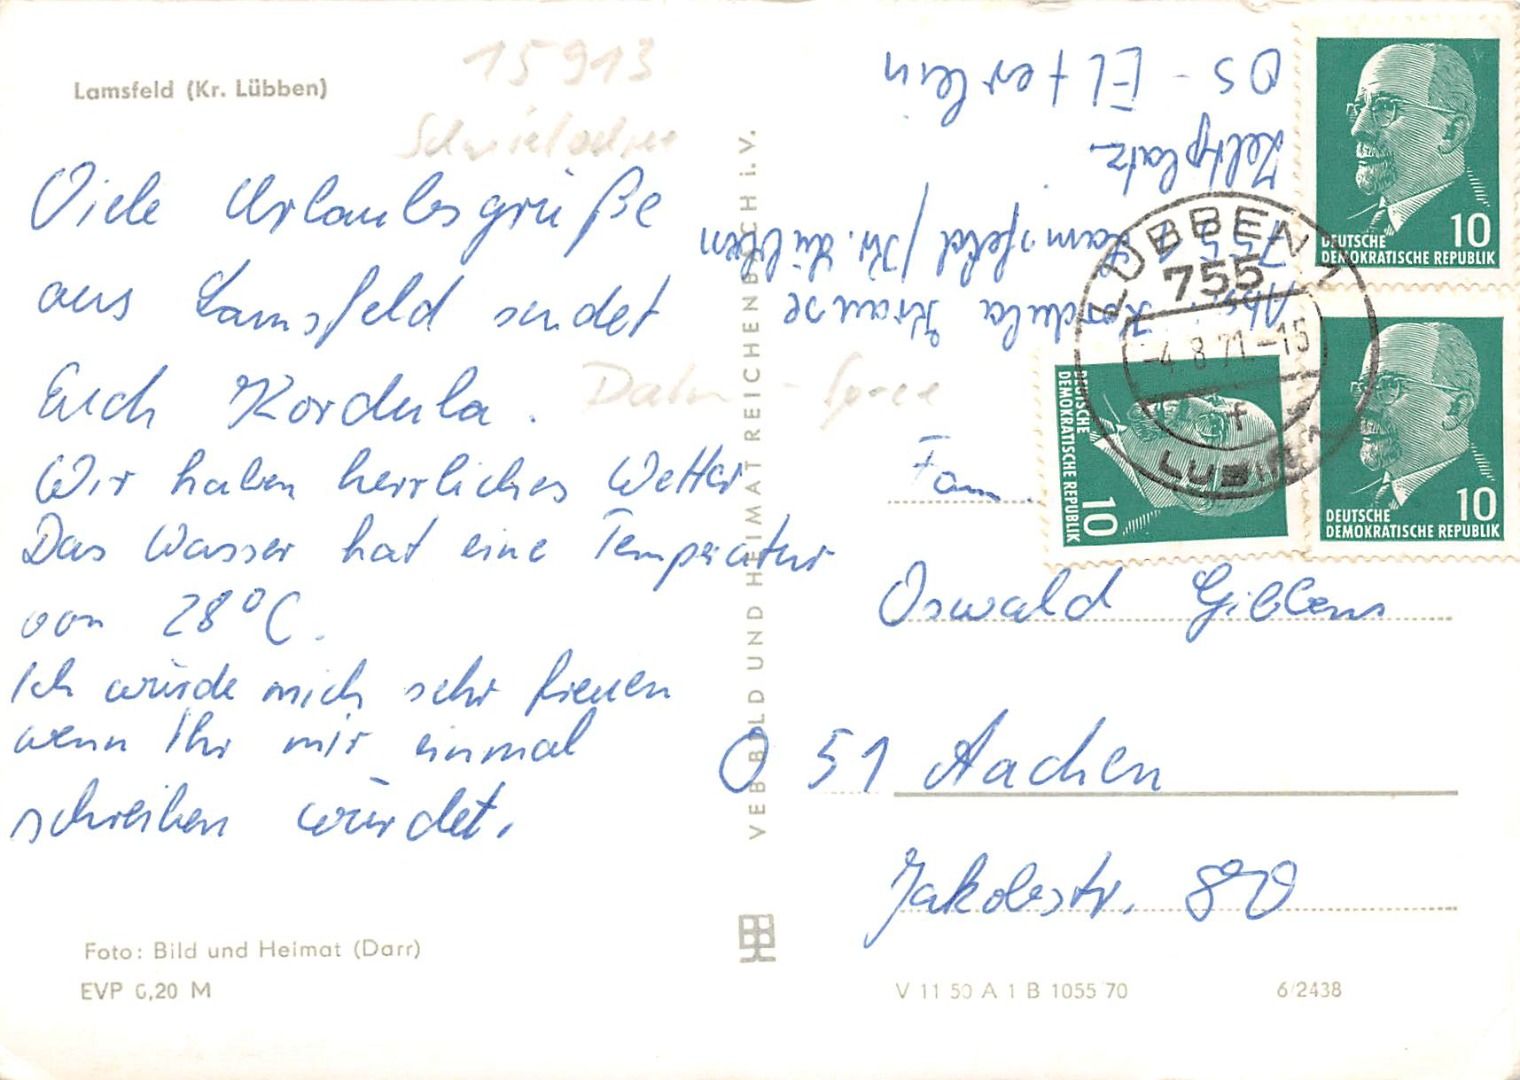 Lamsfeld (Kr. Lübben)
15913
Schwielochsee
Viele Urlaubsgrüße
aus Lamsfeld sendet
Euch Kordula.
Dahme-Spree
Wir haben herrliches Wetter
Das Wasser hat eine Temperatur
von 28°C.
Ich würde mich sehr freuen
wenn Ihr mir einmal
schreiben würdet.
Foto: Bild und Heimat (Darr)
EVP 0,20 M
VEB BILD UND HEIMAT REICHENBACH i. V.
Abs.: Kordula Krause
7551 Lamsfeld / Kr. Lübben
Zeltplatz
OS - Elterlein
10
DEUTSCHE
DEMOKRATISCHE REPUBLIK
10
DEUTSCHE
DEMOKRATISCHE REPUBLIK
10
DEUTSCHE
DEMOKRATISCHE REPUBLIK
LÜBBEN 1
755
-4.8.71-15
f
Fam.
Oswald Gibbens
D 51 Aachen
Jakobstr. 80
V 11 50 A 1 B 1055 70
6/2438